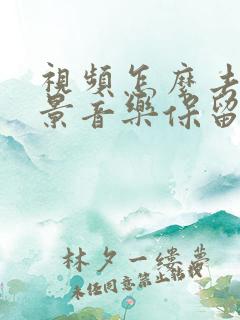 視頻怎麼去
景音樂保留
林夕一縷夢
未任同意禁止轉載